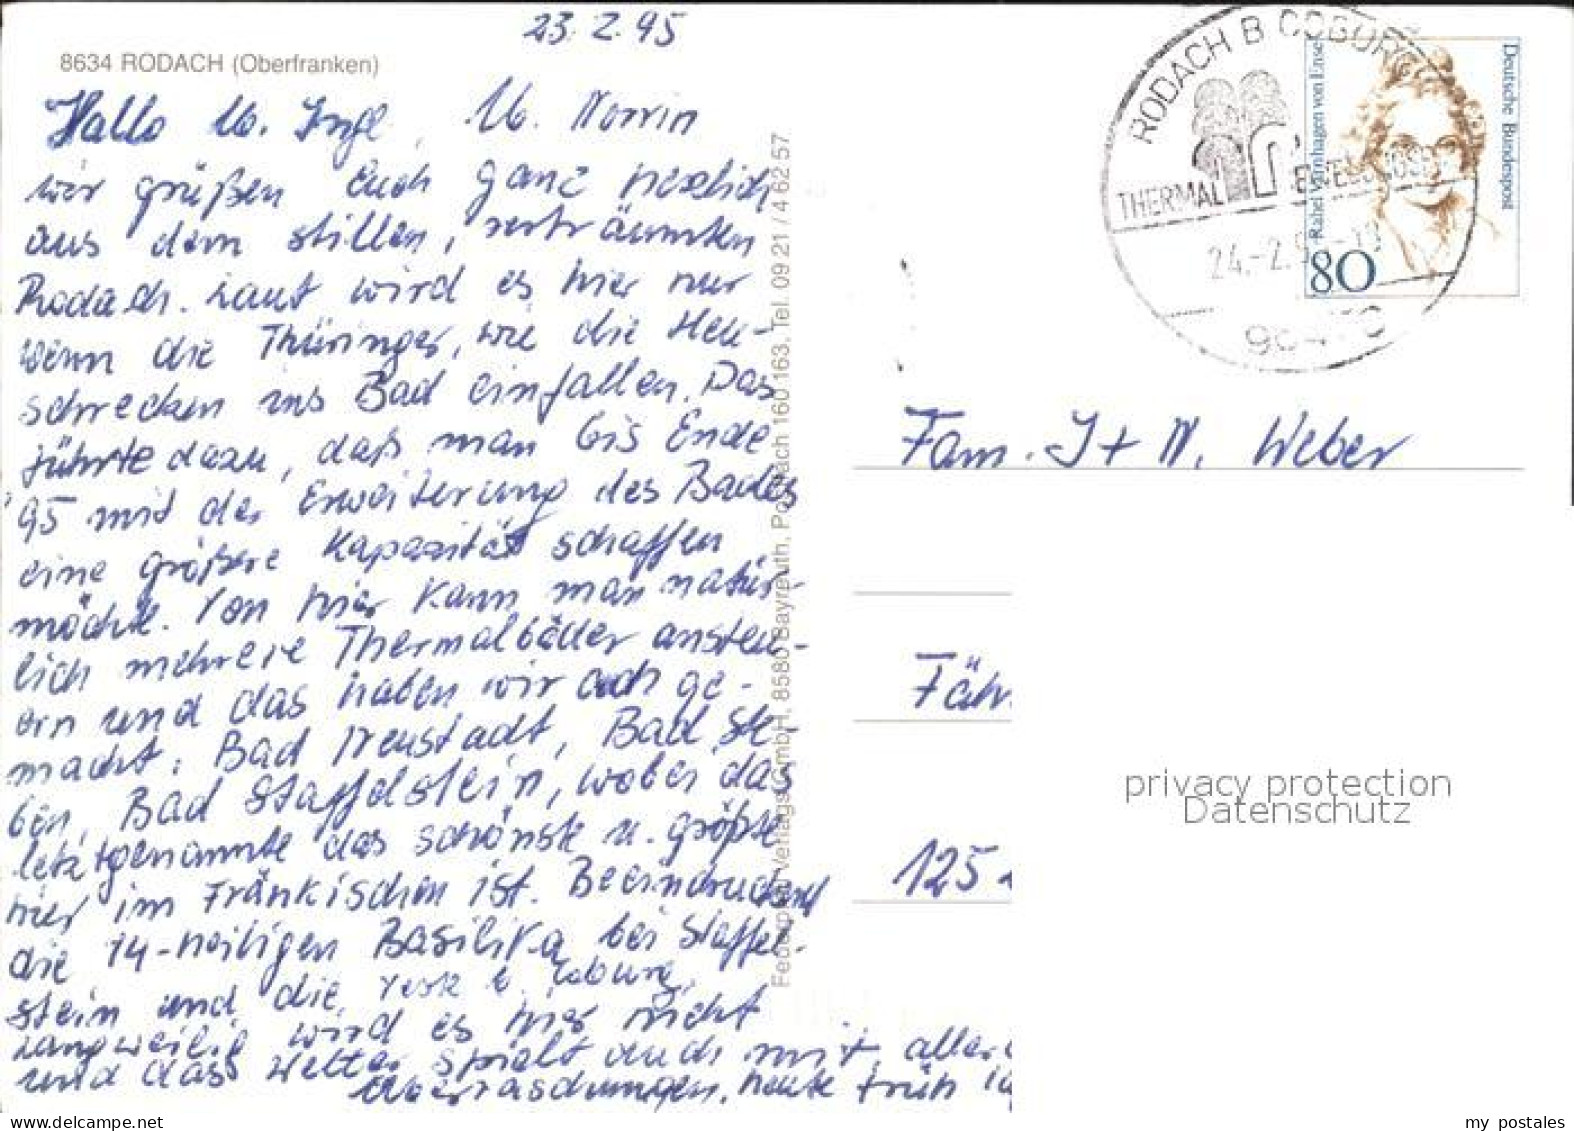 23.2.95
8634 RODACH (Oberfranken)
Hallo
wir grüßen Euch ganz herzlich
aus dem stillen, verträumten
Rodach. Laut wird es hier nur
wenn die Thüringer, wie die Heu-
schrecken ins Bad einfallen. Das
führte dazu, daß man bis Ende
95 mit der Erweiterung des Bades
eine größere Kapazität schaffen
möchte. Von hier kann man natür-
lich mehrere Thermalbäder ansteu-
ern und das haben wir auch ge-
macht. Bad Neustadt, Bad Ste-
ben, Bad Staffelstein, wobei das
letztgenannte das schönste u. größte
hier im Fränkischen ist. Beeindruckend
die 14-heiligen Basilika bei Staffel-
stein und die Veste b. Coburg.
Langweilig wird es hier nicht
und das Wetter spielt auch mit aller
Überraschungen, heute früh
Federpubl Verlags GmbH, 8580 Bayreuth, Postfach 160 163, Tel. 09 21 / 4 62 57
RODACH B COBURG
THERMAL
24.-2.9
Deutsche Bundespost
Rahel Varnhagen von Ense
80
Fam. I + N. Weber
Fähr
125
privacy protection
Datenschutz
my postales